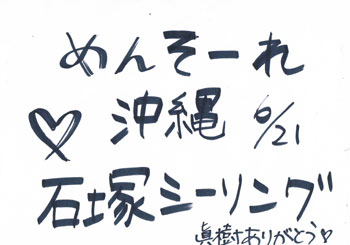 めんそーれ
♡ 沖縄 6/21
石塚ミーリング
眞樹ありがとう♡